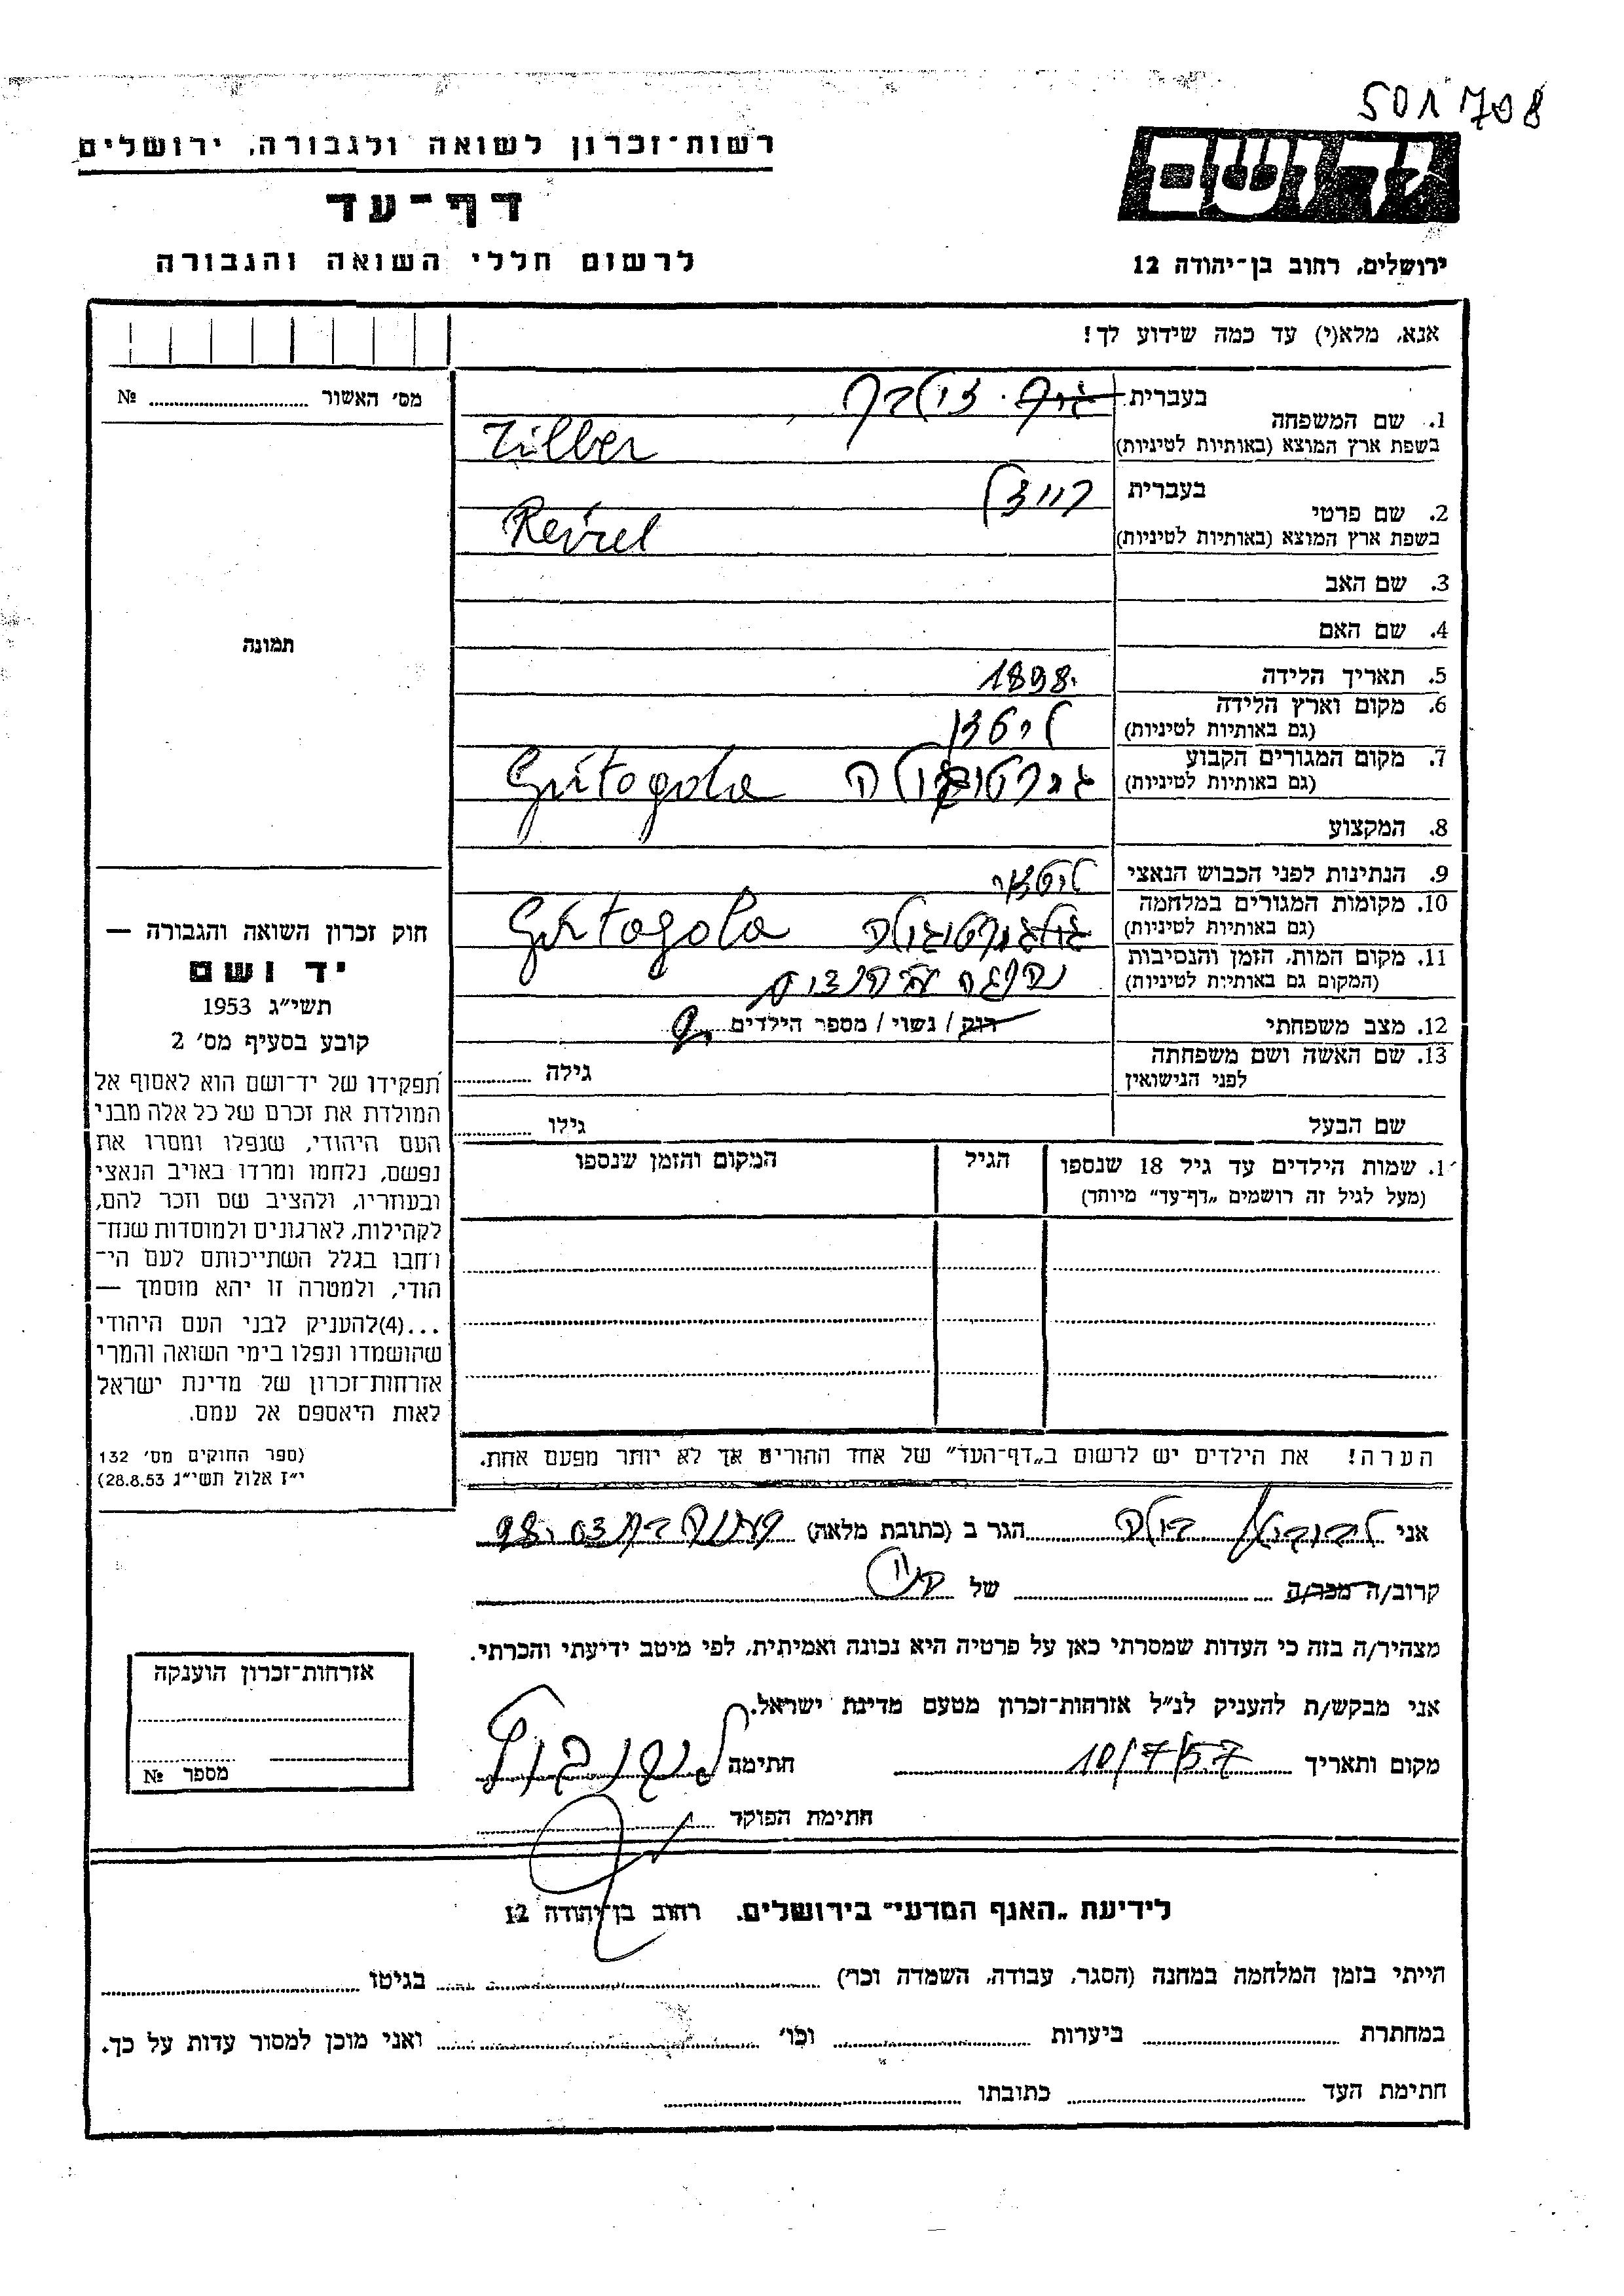 501708
רשות־זכרון לשואה ולגבורה, ירושלים
דף־עד
לרשום חללי השואה והגבורה
ירושלים, רחוב בן־יהודה 12
אנא, מלא(י) עד כמה שידוע לך!
מס׳ האשור № 
1. שם המשפחה בעברית זילבר
בשפת ארץ המוצא (באותיות לטיניות) Zilber
2. שם פרטי בעברית רייזל
בשפת ארץ המוצא (באותיות לטיניות) Reizel
3. שם האב
4. שם האם
תמונה
5. תאריך הלידה 1898
6. מקום וארץ הלידה ליטא
(גם באותיות לטיניות)
7. מקום המגורים הקבוע גירטוגולה Girtogola
(גם באותיות לטיניות)
8. המקצוע
9. הנתינות לפני הכבוש הנאצי ליטאי
10. מקומות המגורים במלחמה גירטוגולה Girtogola
(גם באותיות לטיניות)
11. מקום המות, הזמן והנסיבות
(המקום גם באותיות לטיניות)
12. מצב משפחתי רוק / נשוי / מספר הילדים
13. שם האשה ושם משפחתה גילה
לפני הנישואין
שם הבעל גילו
1. שמות הילדים עד גיל 18 שנספו הגיל המקום והזמן שנספו
(מעל לגיל זה רושמים „דף־עד״ מיוחד)
הערה! את הילדים יש לרשום ב„דף־העד״ של אחד ההורים אך לא יותר מפעם אחת.
חוק זכרון השואה והגבורה —
יד ושם
תשי״ג 1953
קובע בסעיף מס׳ 2
תפקידו של יד־ושם הוא לאסוף אל
המולדת את זכרם של כל אלה מבני
העם היהודי, שנפלו ומסרו את
נפשם, נלחמו ומרדו באויב הנאצי
ובעוזריו, ולהציב שם וזכר להם,
לקהילות, לארגונים ולמוסדות שנח־
רחבו בגלל השתייכותם לעם הי־
הודי, ולמטרה זו יהא מוסמך —
...(4)להעניק לבני העם היהודי
שהושמדו ונפלו בימי השואה והמרי
אזרחות־זכרון של מדינת ישראל
לאות היאספם אל עמם.
(ספר החוקים מס׳ 132
י״ז אלול תשי״ג 28.8.53)
אני הגר ב (כתובת מלאה)
קרוב/ה מכר/ה של
מצהיר/ה בזה כי העדות שמסרתי כאן על פרטיה היא נכונה ואמיתית, לפי מיטב ידיעתי והכרתי.
אני מבקש/ת להעניק לנ״ל אזרחות־זכרון מטעם מדינת ישראל.
מקום ותאריך 10/7/57 חתימה
חתימת הפוקד
אזרחות־זכרון הוענקה
מספר №
לידיעת „האגף המדעי״ בירושלים. רחוב בן־יהודה 12
הייתי בזמן המלחמה במחנה (הסגר, עבודה, השמדה וכו׳) בגיטו
במחתרת ביערות וכו׳ ואני מוכן למסור עדות על כך.
חתימת העד כתובתו